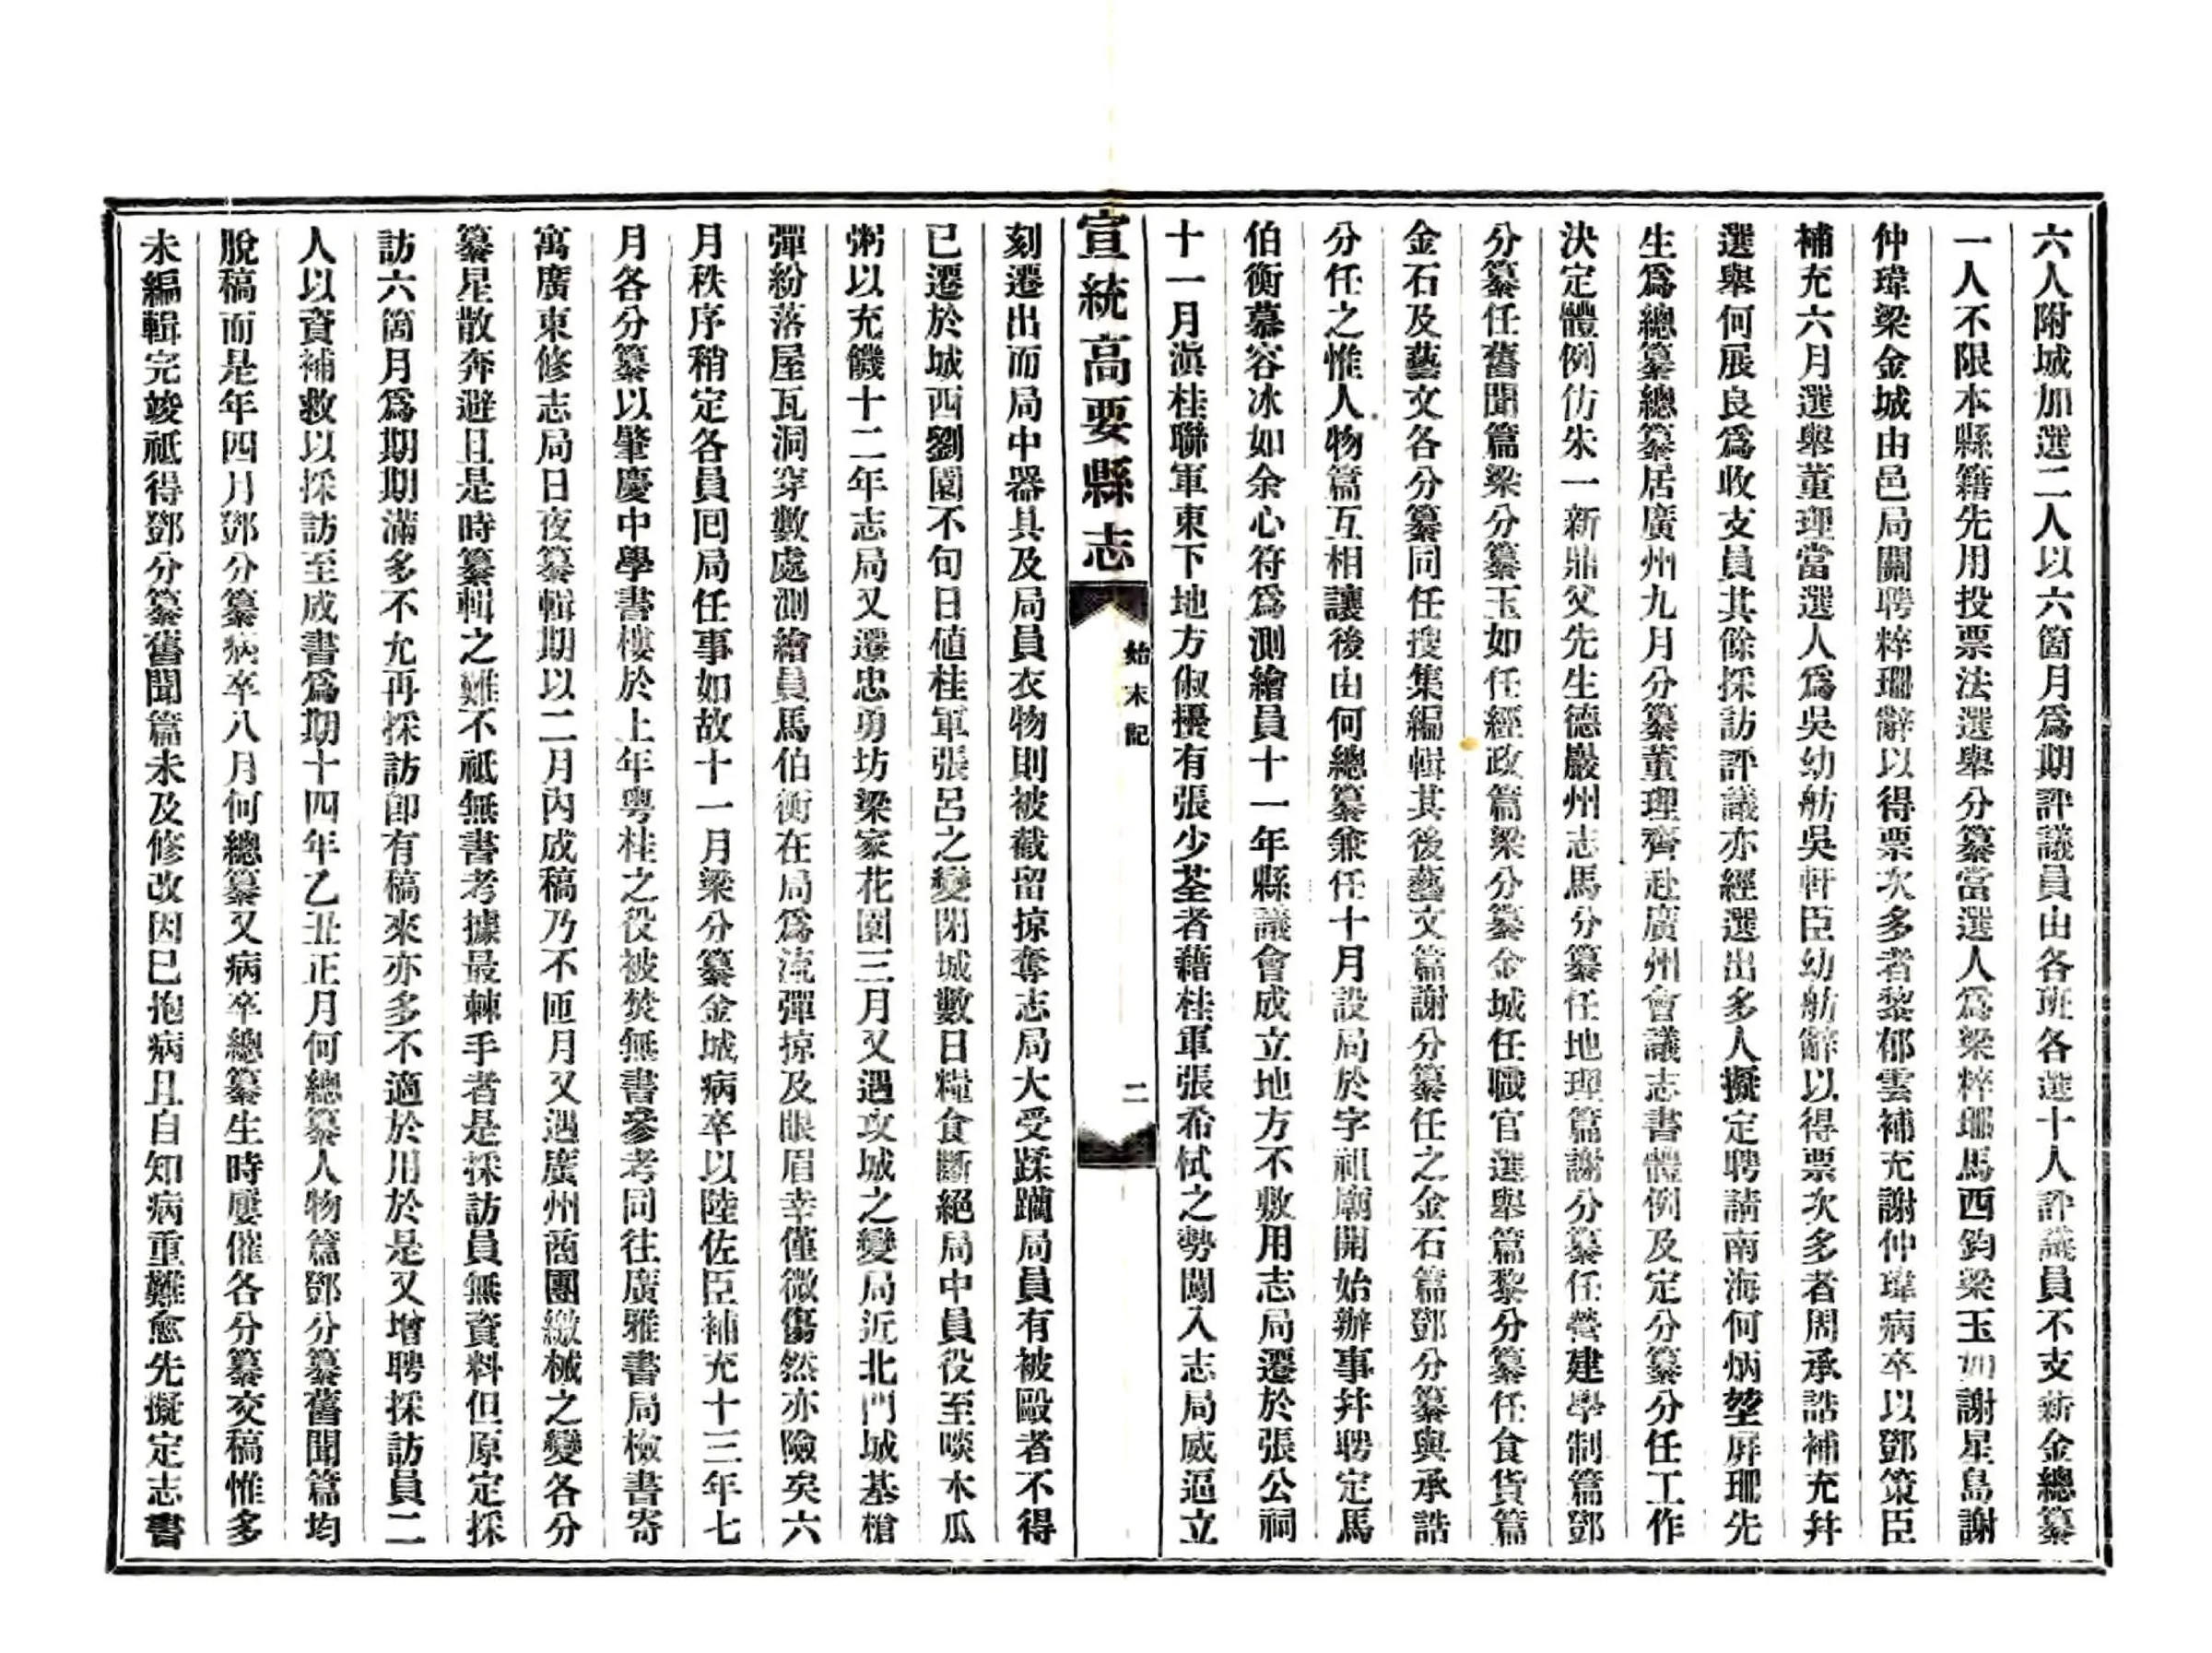 六人附城加選二人以六箇月爲期評議員由各班各選十人評議員不支薪金總纂
一人不限本縣籍先用投票法選舉分纂當選人爲梁粹珊馬西鈞梁玉如謝星島謝
仲瑋梁金城由邑局關聘粹珊辭以得票次多者黎郁雲補充謝仲瑋病卒以鄧策臣
補充六月選舉董理當選人爲吳幼舫吳軒臣幼舫辭以得票次多者周承誥補充幷
選舉何展良爲收支員其餘採訪評議亦經選出多人擬定聘請南海何炳堃屛珊先
生爲總纂總纂居廣州九月分纂董理齊赴廣州會議志書體例及定分纂分任工作
決定體例仿朱一新鼎父先生德嚴州志馬分纂任地理篇謝分纂任營建學制篇鄧
分纂任舊聞篇梁分纂玉如任經政篇梁分纂金城任職官選舉篇黎分纂任食貨篇
金石及藝文各分纂同任搜集編輯其後藝文篇謝分纂任之金石篇鄧分纂與承誥
分任之惟人物篇互相讓後由何總纂兼任十月設局於字祖廟開始辦事幷聘定馬
伯衡慕容冰如余心符爲測繪員十一年縣議會成立地方不敷用志局遷於張公祠
十一月滇桂聯軍東下地方俶擾有張少荃者藉桂軍張希栻之勢闖入志局威逼立
宣統高要縣志
始末記
二
刻遷出而局中器具及局員衣物則被截留掠奪志局大受蹂躪局員有被毆者不得
已遷於城西劉園不旬日値桂軍張呂之變閉城數日糧食斷絕局中員役至啖木瓜
粥以充饑十二年志局又遷忠勇坊梁家花園三月又遇攻城之變局近北門城基槍
彈紛落屋瓦洞穿數處測繪員馬伯衡在局爲流彈掠及眼眉幸僅微傷然亦險矣六
月秩序稍定各員回局任事如故十一月梁分纂金城病卒以陸佐臣補充十三年七
月各分纂以肇慶中學書樓於上年粵桂之役被焚無書參考同往廣雅書局檢書寄
寓廣東修志局日夜纂輯期以二月內成稿乃不匝月又遇廣州商團繳械之變各分
纂星散奔避且是時纂輯之難不祗無書考據最棘手者是採訪員無資料但原定採
訪六箇月爲期期滿多不允再採訪卽有稿來亦多不適於用於是又增聘採訪員二
人以資補救以採訪至成書爲期十四年乙丑正月何總纂人物篇鄧分纂舊聞篇均
脫稿而是年四月鄧分纂病卒八月何總纂又病卒總纂生時屢催各分纂交稿惟多
未編輯完竣祗得鄧分纂舊聞篇未及修改因已抱病且自知病重難愈先擬定志書